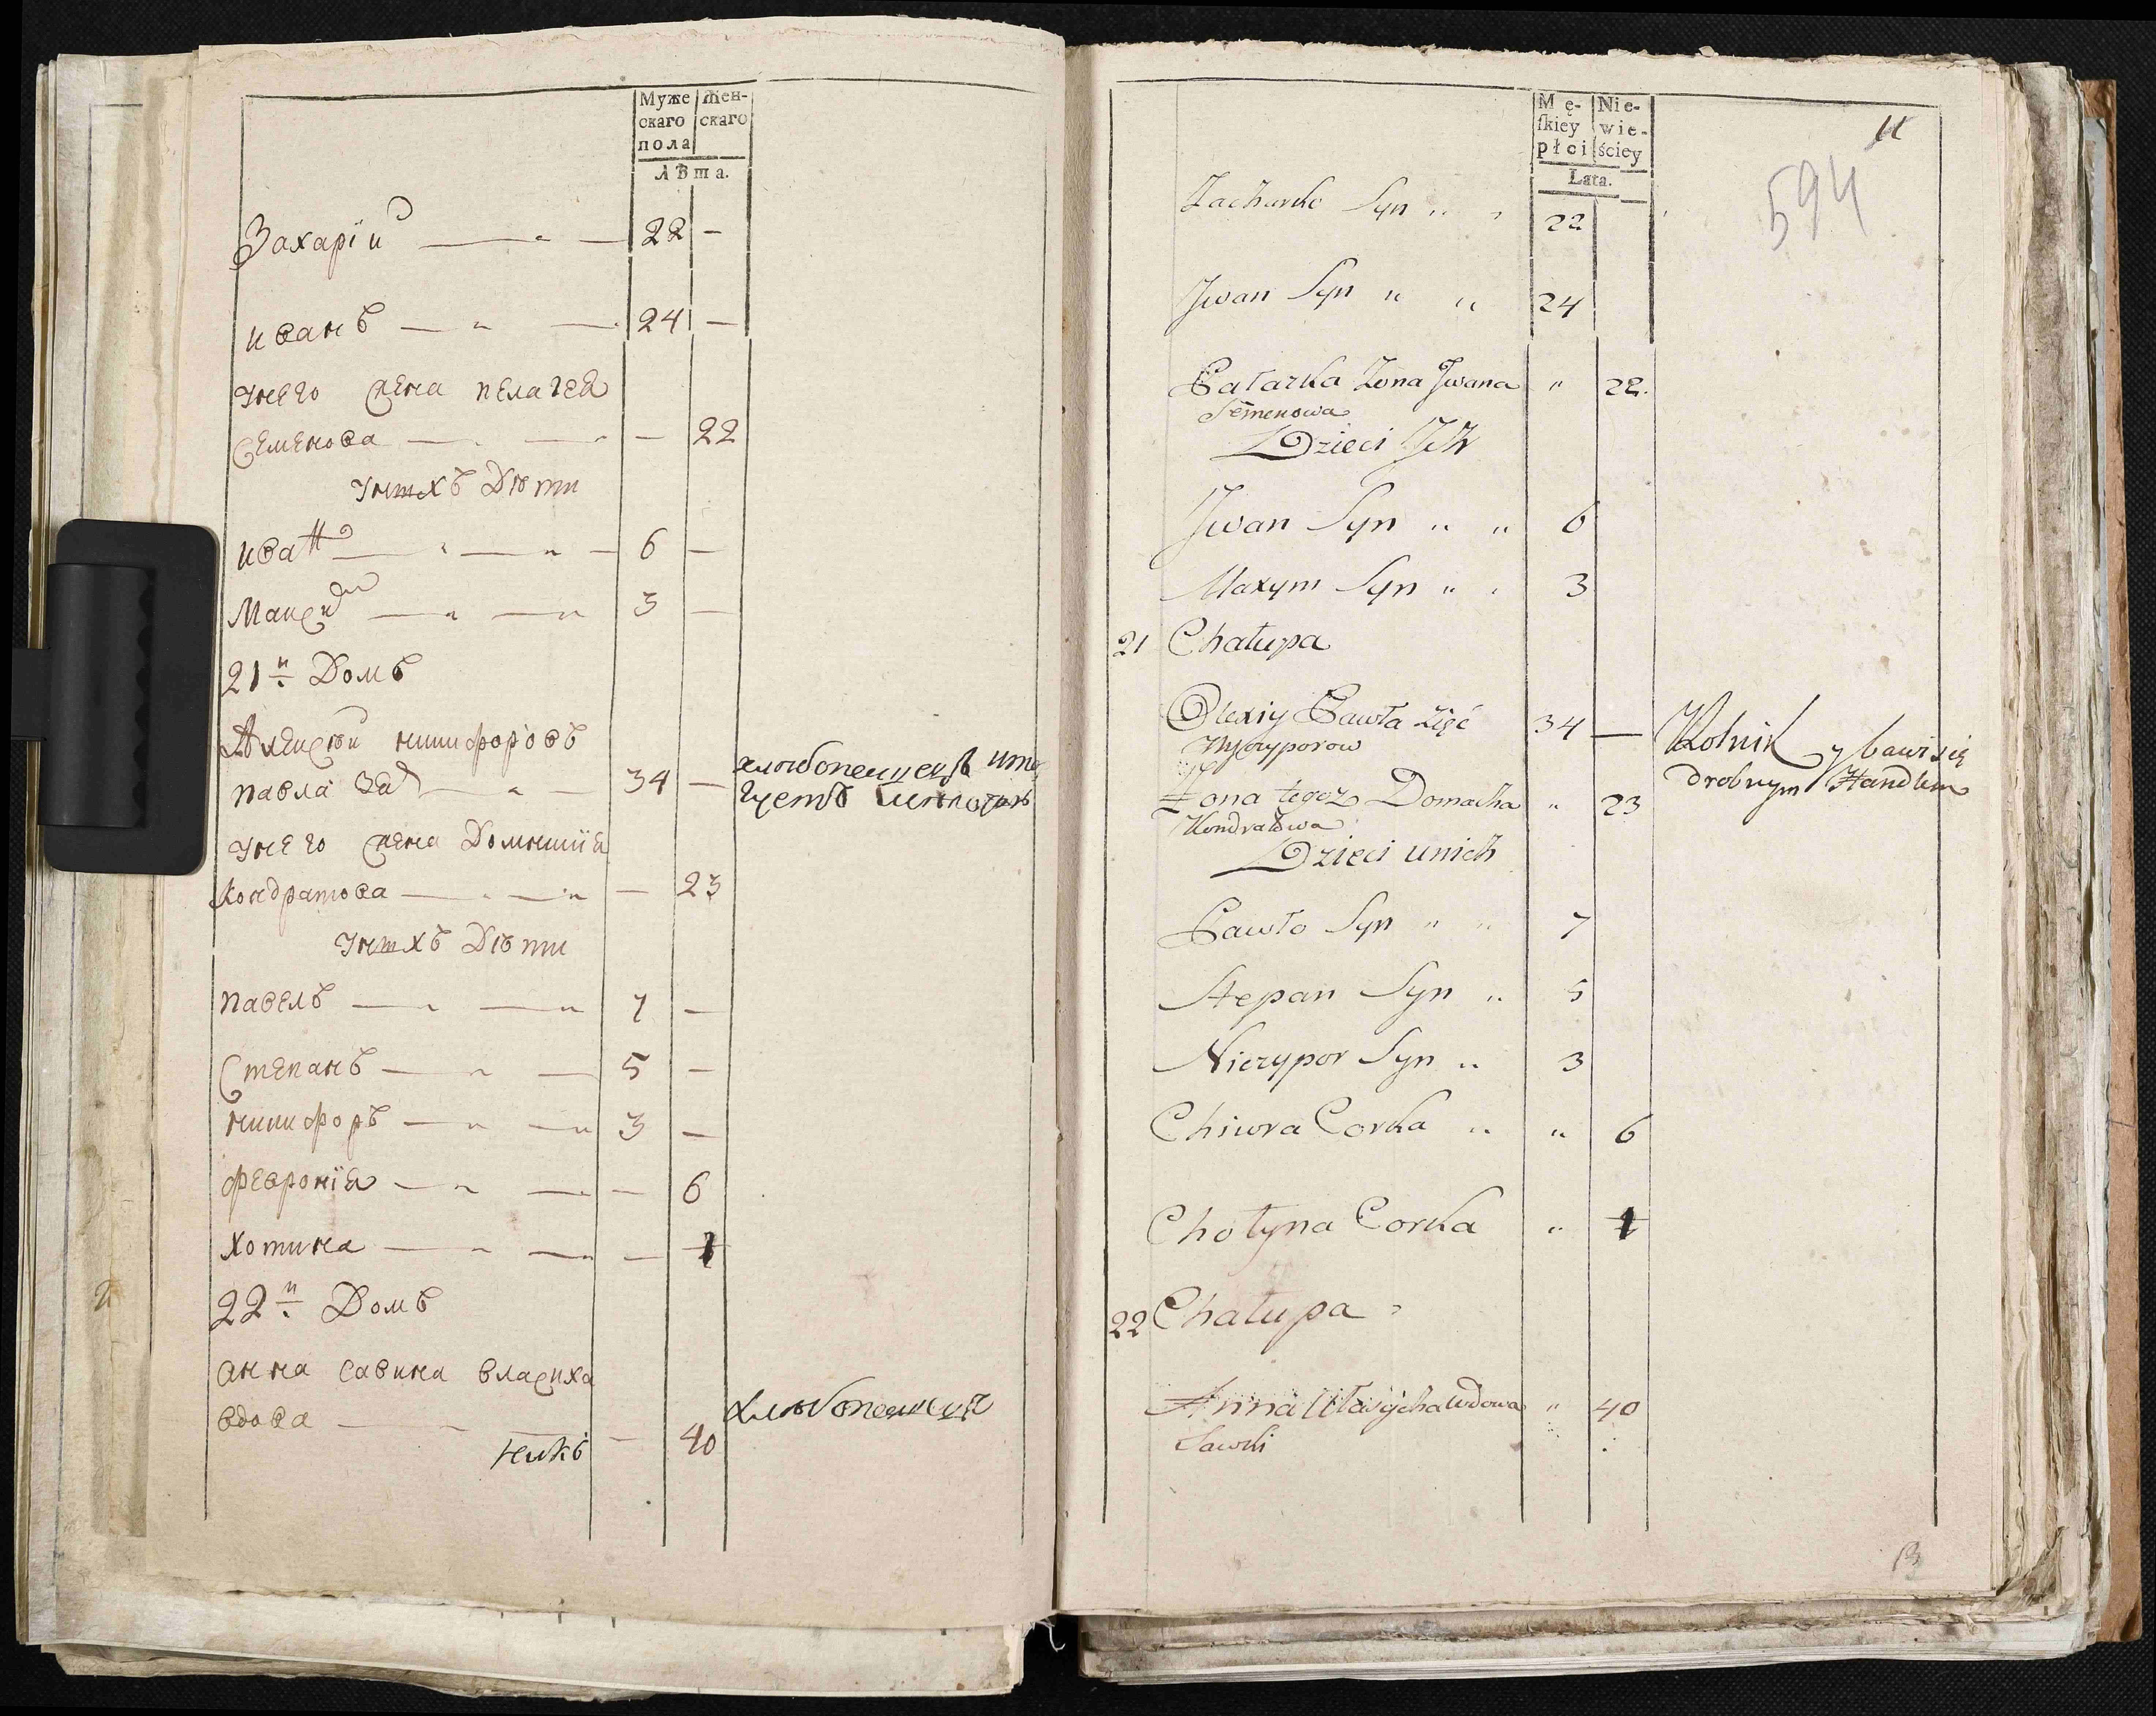 Муже Жен-
скаго скаго
пола
лѣта.
Захарїй 22 —
иванъ 24 —
унего жена пелагея
Семенова — 22
унихъ Дѣти
иванъ 6 —
Максим 3 —
21й Домъ
Алексѣй никифоровъ
павла зят 34 —
хлѣбопашецъ
унего жена Домникия
кондратова — 23
унихъ Дѣти
павелъ 7 —
Степанъ 5 —
никифоръ 3 —
феврония — 6
хотина — 1
22й Домъ
анна савина власиха
вдова — 40
хлѣбопашецъ
Mę- Nie-
skiey wie-
płci ściey
Lata.
11
594
Zacharko Syn " " 22
Jwan Syn " " 24
Pałazka Żona Jwana " 22.
Semenowa
Dzieci Jch
Jwan Syn " " 6
Maxym Syn " " 3
21 Chałupa
Olexiy Pawła Zięć 34 —
Nyczyporow
Rolnik y bawi się
drobnym Handlem
Żona tegoż Domacha " 23
Kondratowa
Dzieci unich
Pawło Syn " " 7
Stepan Syn " 5
Niczypor Syn " 3
Chiwra Corka " " 6
Chotyna Corka " 1
22 Chałupa
Anna Ułasycha wdowa " 40
Sawki
13